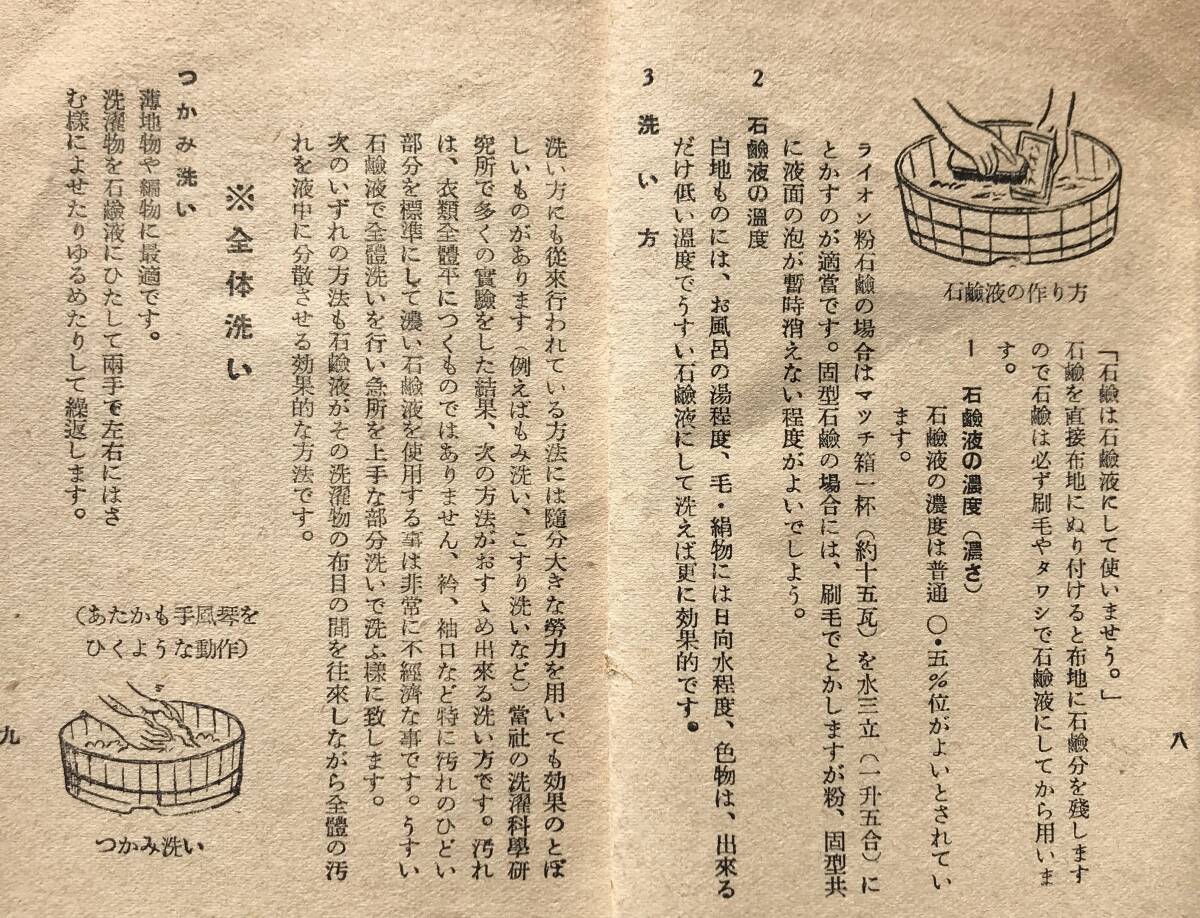 八
石鹼液の作り方
「石鹼は石鹼液にして使いませう。」
石鹼を直接布地にぬり付けると布地に石鹼分を殘します
ので石鹼は必ず刷毛やタワシで石鹼液にしてから用いま
す。
1 石鹼液の濃度(濃さ)
石鹼液の濃度は普通〇・五%位がよいとされてい
ます。
ライオン粉石鹼の場合はマッチ箱一杯(約十五瓦)を水三立(一升五合)に
とかすのが適當です。固型石鹼の場合には、刷毛でとかしますが粉、固型共
に液面の泡が暫時消えない程度がよいでしよう。
2 石鹼液の溫度
白地ものには、お風呂の湯程度、毛・絹物には日向水程度、色物は、出來る
だけ低い溫度でうすい石鹼液にして洗えば更に効果的です。
3 洗い方
洗い方にも從來行われている方法には隨分大きな勞力を用いても効果のとぼ
しいものがあります(例えばもみ洗い、こすり洗いなど)當社の洗濯科學研
究所で多くの實驗をした結果、次の方法がおすゝめ出來る洗い方です。汚れ
は、衣類全體平につくものではありません、衿、袖口など特に汚れのひどい
部分を標準にして濃い石鹼液を使用する事は非常に不經濟な事です。うすい
石鹼液で全體洗いを行い急所を上手な部分洗いで洗ふ樣に致します。
次のいずれの方法も石鹼液がその洗濯物の布目の間を往來しながら全體の汚
れを液中に分散させる効果的な方法です。
※全体洗い
つかみ洗い
薄地物や編物に最適です。
洗濯物を石鹼液にひたして兩手で左右にはさ
む樣によせたりゆるめたりして繰返します。
(あたかも手風琴を
ひくような動作)
つかみ洗い
九